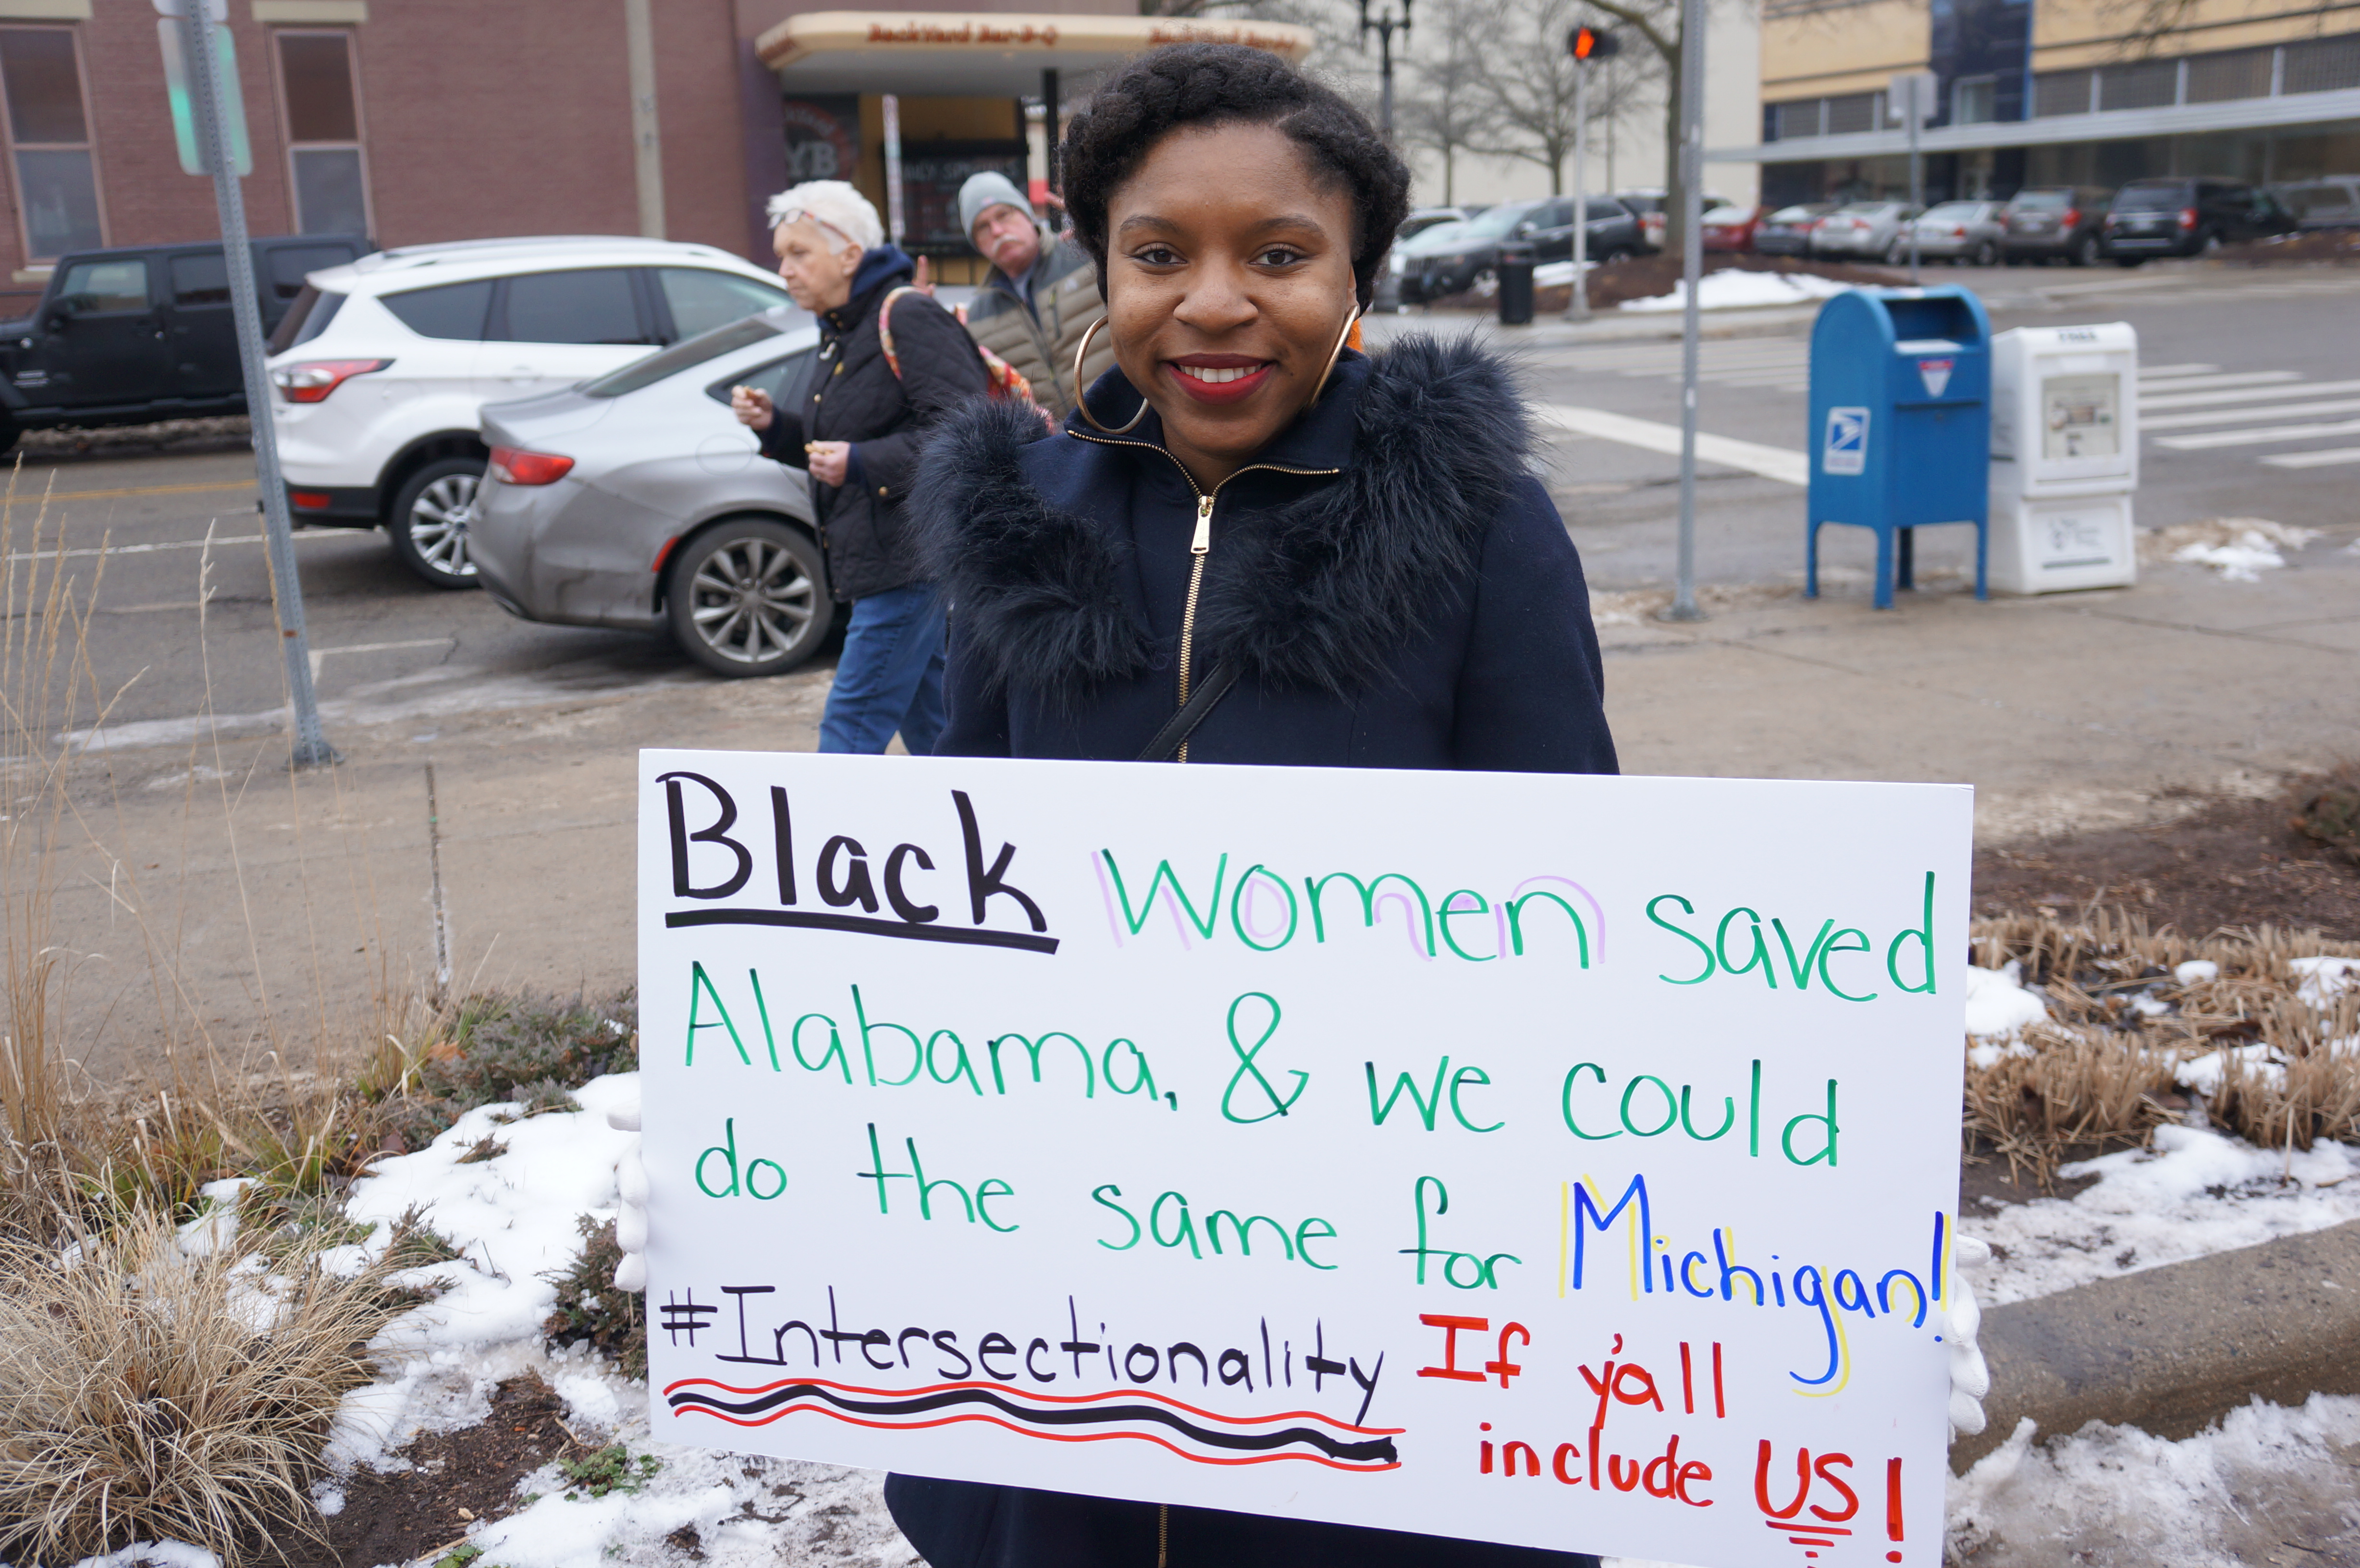 BackYard Bar-B-Q
YB
Black Women saved
Alabama, & we could
do the same for Michigan!
#Intersectionality If y'all
include US!